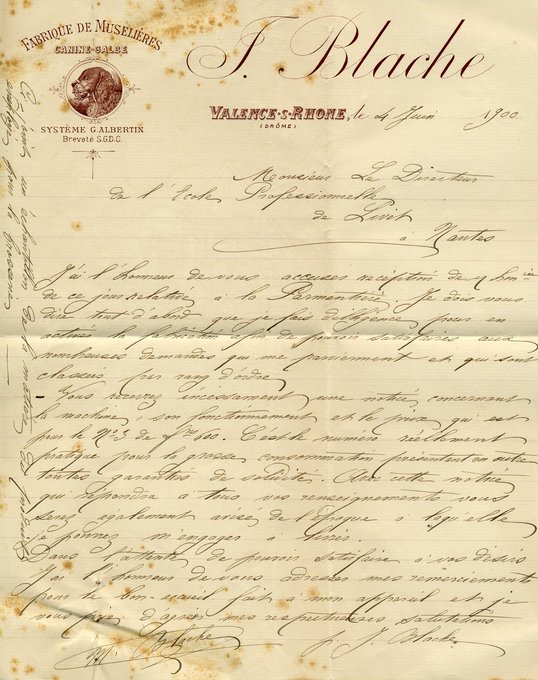 FABRIQUE DE MUSELIÈRES
CANINE-GALBE
SYSTÈME G. ALBERTIN
Breveté S.G.D.G.
J. Blache
VALENCE-S-RHONE, le 4 Juin 1900
(DRÔME)
Monsieur Le Directeur
de l'Ecole Professionnelle
de Livet
à Nantes
J'ai l'honneur de vous accuser réception de
de ce jour relative à la Parmentière. Je dois vous
dire tout d'abord que je fais diligence pour en
activer la fabrication afin de pouvoir satisfaire aux
nombreuses demandes qui me parviennent et qui sont
classées par rang d'ordre
Vous recevrez incessament une notice concernant
la machine, son fonctionnement et le prix qui est
pour le No 3 de 600. C'est le numéro réellement
pratique pour la grosse consommation présentant en outre
toutes garanties de solidité. Avec cette notice
qui répondra à tous vos renseignements vous
serez également avisé de l'Epoque à laquelle
je pourrez m'engager à livrer.
Dans l'attente de pouvoir satisfaire à vos désirs
J'ai l'honneur de vous adresser mes remerciements
pour le bon accueil fait à mon appareil et je
vous prie d'agréer mes respectueuses salutations
J. Blache
un échantillon de la matière